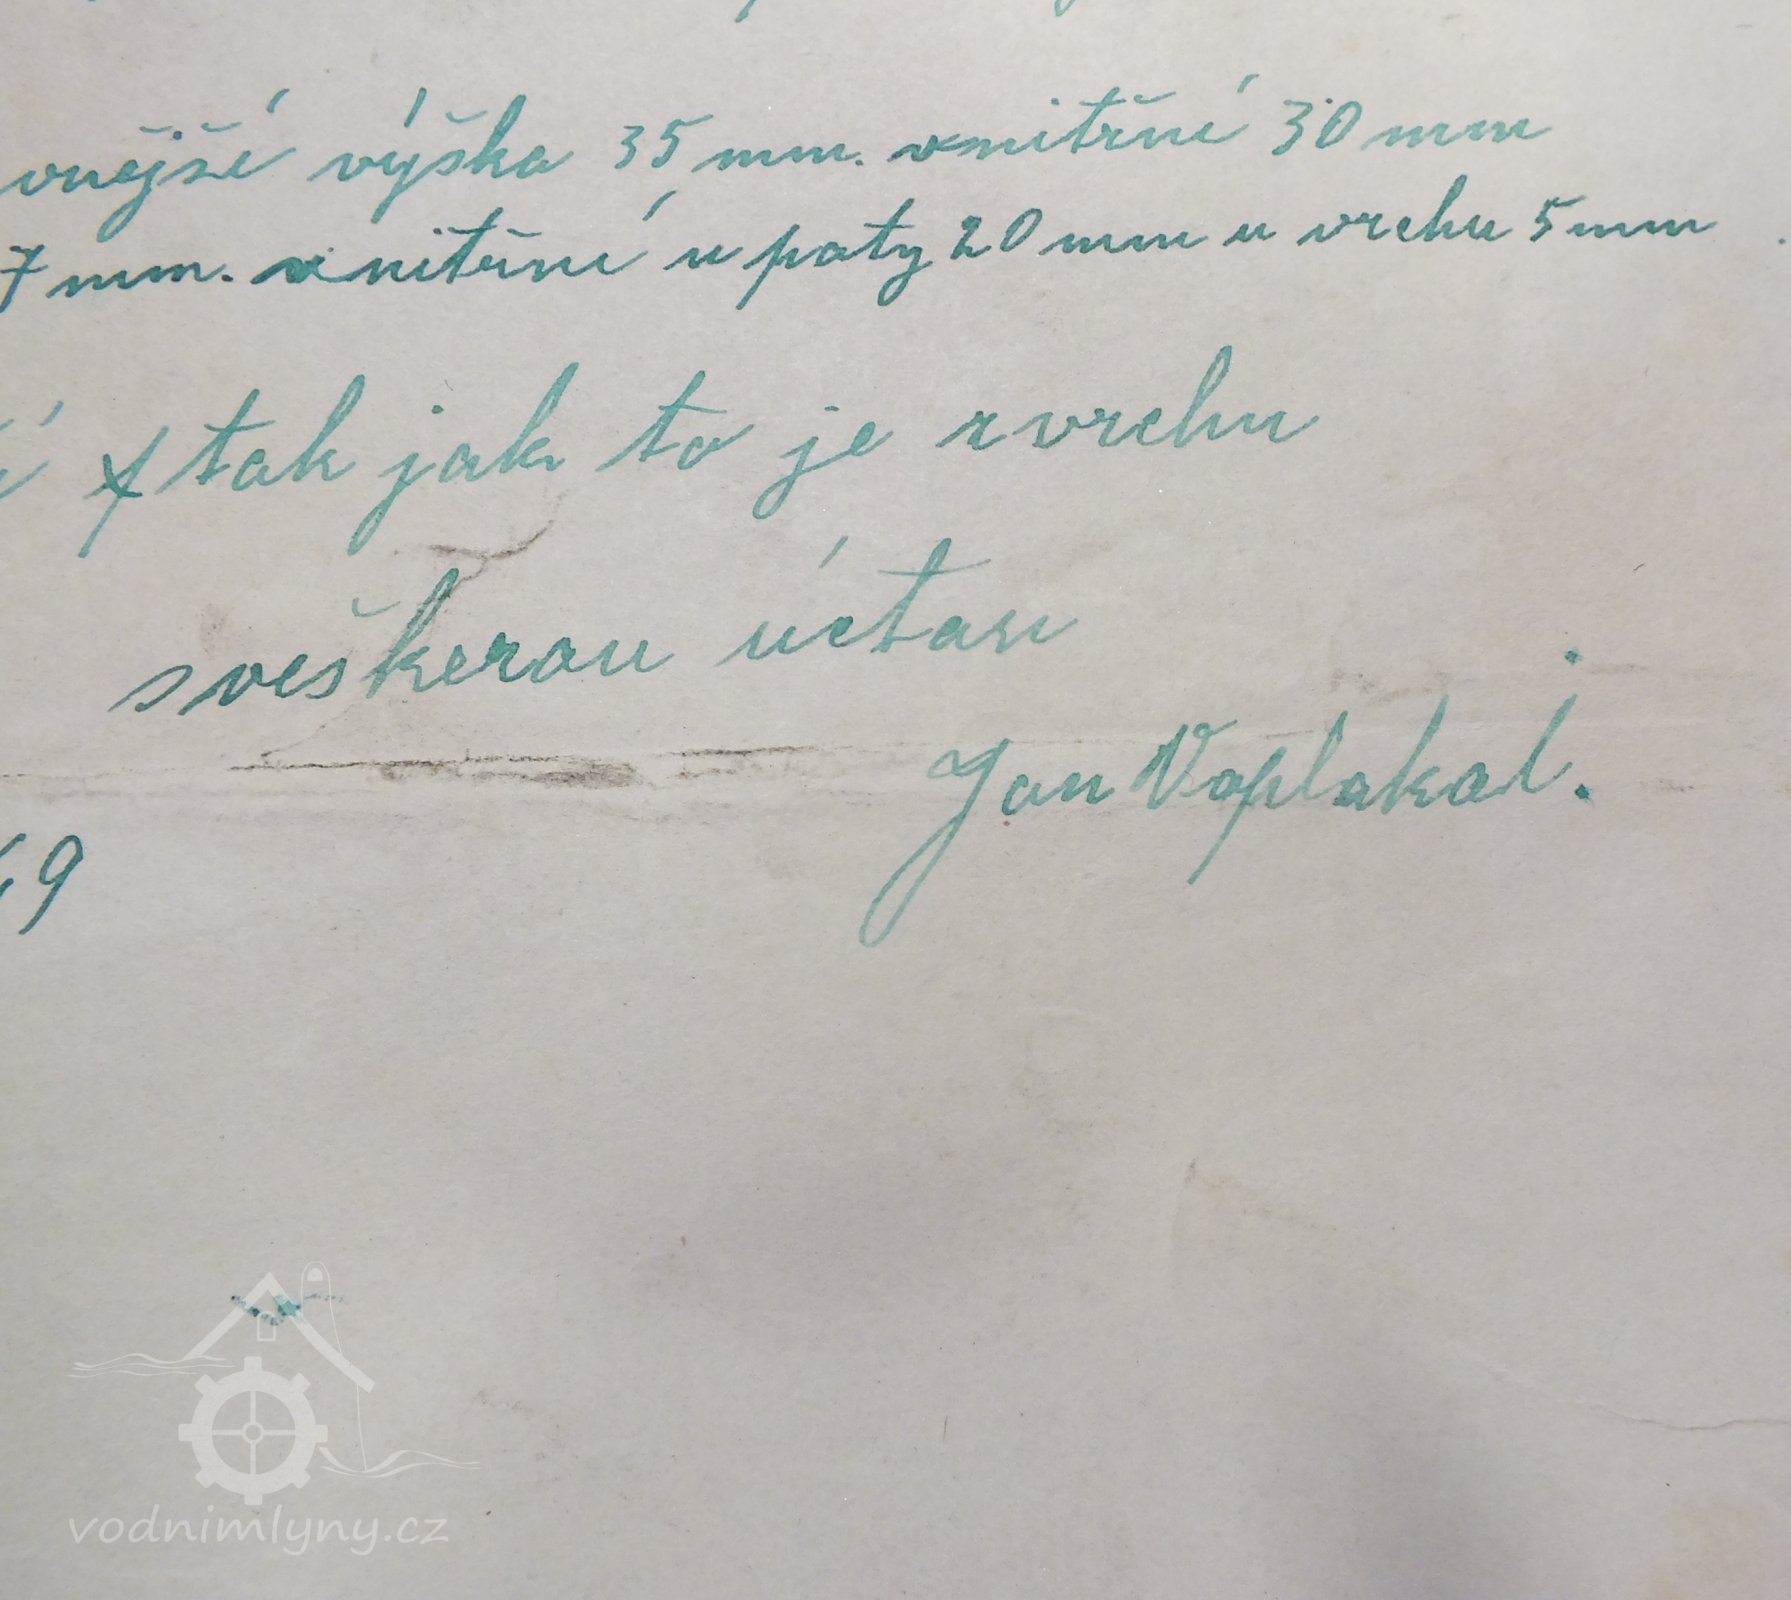 vnější výška 35 mm. vnitřní 30 mm
7 mm. vnitřní u paty 20 mm u vrchu 5 mm
tak jak to je zvrchu
sveškerou úctou
Jan Voplakal.
49
vodnimlyny.cz